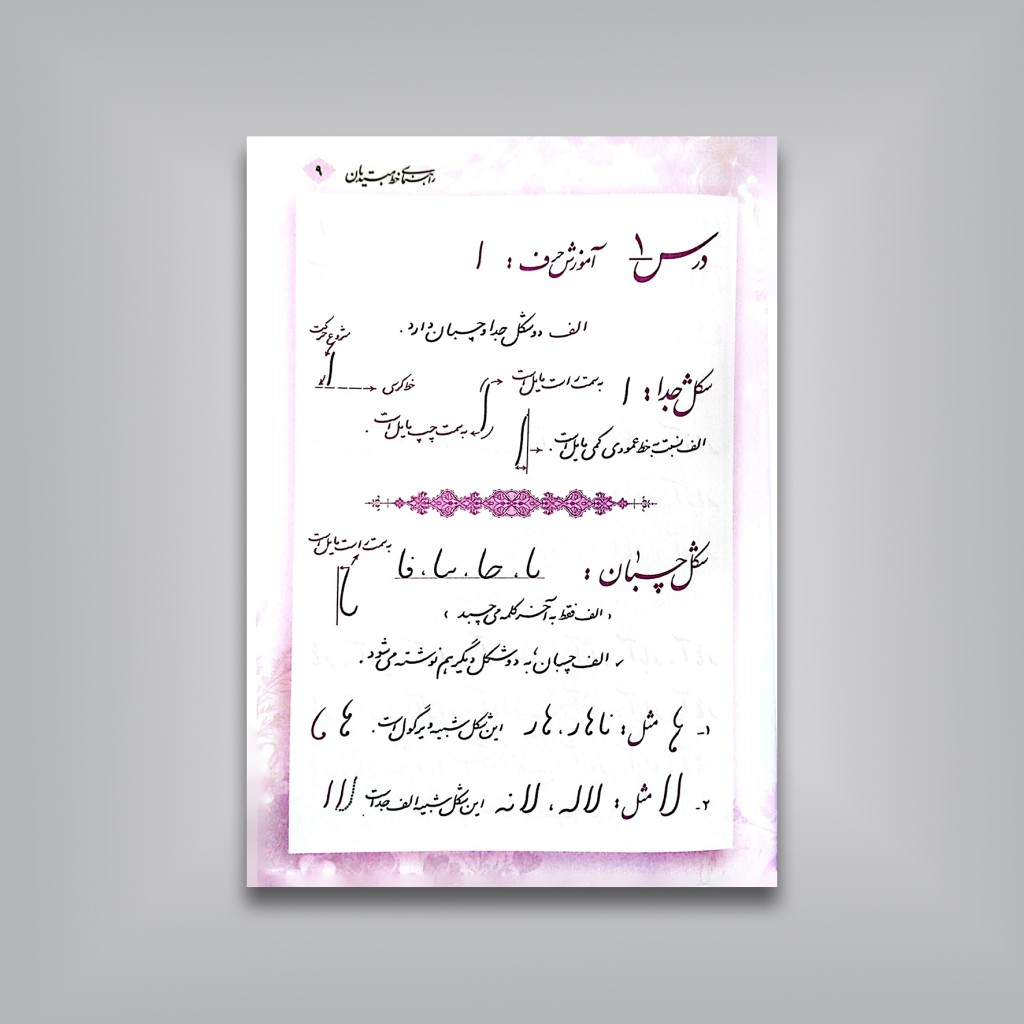 راهنمای خط مبتدیان ۹
درس ۱ آموزش حرف : ا
الف دو شکل جدا و چسبان دارد .
شروع حرکت
شکل جدا : ا به سمت راست مایل است
خط کرسی
به سمت چپ مایل است .
الف نسبت به خط عمودی کمی مایل است .
شکل چسبان : با ، حا ، سا ، فا
به سمت راست مایل است
( الف فقط به آخر کلمه می چسبد )
الف چسبان به دو شکل دیگر هم نوشته می شود .
۱- ها مثل : ناهار ، هار این شکل شبیه ویرگول است . ها
۲- لا مثل : لاله ، لانه این شکل شبیه الف جداست